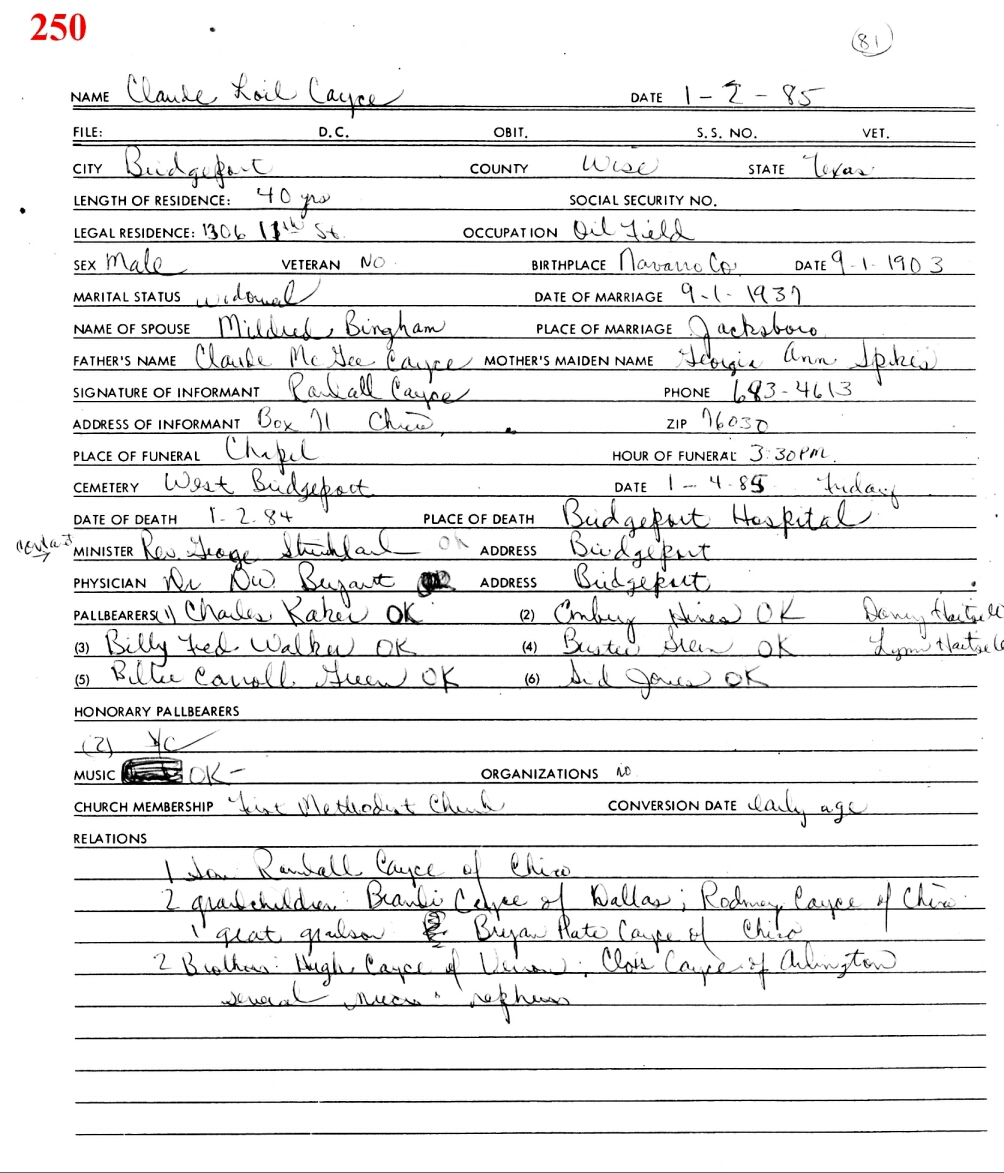 250
81
NAME Claude Loil Cayce DATE 1-2-85
FILE: D.C. OBIT. S.S. NO. VET.
CITY Bridgeport COUNTY Wise STATE Texas
LENGTH OF RESIDENCE: 40 yrs SOCIAL SECURITY NO.
LEGAL RESIDENCE: 1306 11th St. OCCUPATION Oil Field
SEX Male VETERAN NO BIRTHPLACE Navarro Co DATE 9-1-1903
MARITAL STATUS widowed DATE OF MARRIAGE 9-1-1937
NAME OF SPOUSE Mildred Bingham PLACE OF MARRIAGE Jacksboro
FATHER'S NAME Claude McGee Cayce MOTHER'S MAIDEN NAME Georgia Ann Spikes
SIGNATURE OF INFORMANT Randall Cayce PHONE 683-4613
ADDRESS OF INFORMANT Box 71 Chico ZIP 76030
PLACE OF FUNERAL Chapel HOUR OF FUNERAL 3:30 PM
CEMETERY West Bridgeport DATE 1-4-85 Friday
DATE OF DEATH 1-2-84 PLACE OF DEATH Bridgeport Hospital
contact MINISTER Rev. George Strickland OK ADDRESS Bridgeport
PHYSICIAN Dr DW Bryant ADDRESS Bridgeport
PALLBEARERS (1) Charles Kaker OK (2) Hines OK Danny
(3) Billy Fred Walker OK (4) Buster Green OK Lynn
(5) Billie Carroll Green OK (6) Sid Jones OK
HONORARY PALLBEARERS
(2)
MUSIC OK- ORGANIZATIONS no
CHURCH MEMBERSHIP First Methodist Church CONVERSION DATE early age
RELATIONS
1 son Randall Cayce of Chico
2 grandchildren: Brandi Cayce of Dallas; Rodney Cayce of Chico
1 great grandson Bryan Cayce of Chico
2 Brothers: Hugh Cayce of Vernon; Clois Cayce of Arlington
several nieces & nephews